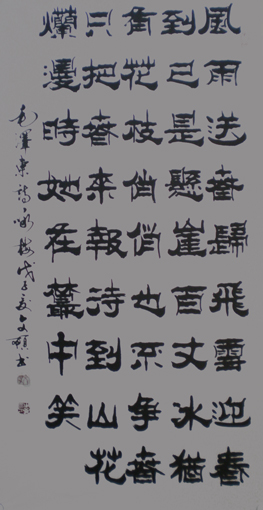 風雨送春歸飛雪迎春
到已是懸崖百丈冰猶
有花枝俏俏也不爭春
只把春來報待到山花
爛漫時她在叢中笑
毛澤東詩詠梅戊子夏文碩書